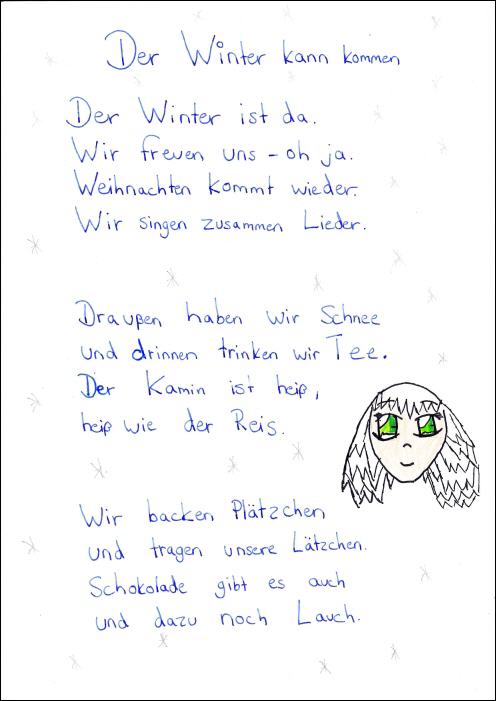 Der Winter kann kommen
Der Winter ist da.
Wir freuen uns - oh ja.
Weihnachten kommt wieder.
Wir singen zusammen Lieder.
Draußen haben wir Schnee
und drinnen trinken wir Tee.
Der Kamin ist heiß,
heiß wie der Reis.
Wir backen Plätzchen
und tragen unsere Lätzchen.
Schokolade gibt es auch
und dazu noch Lauch.